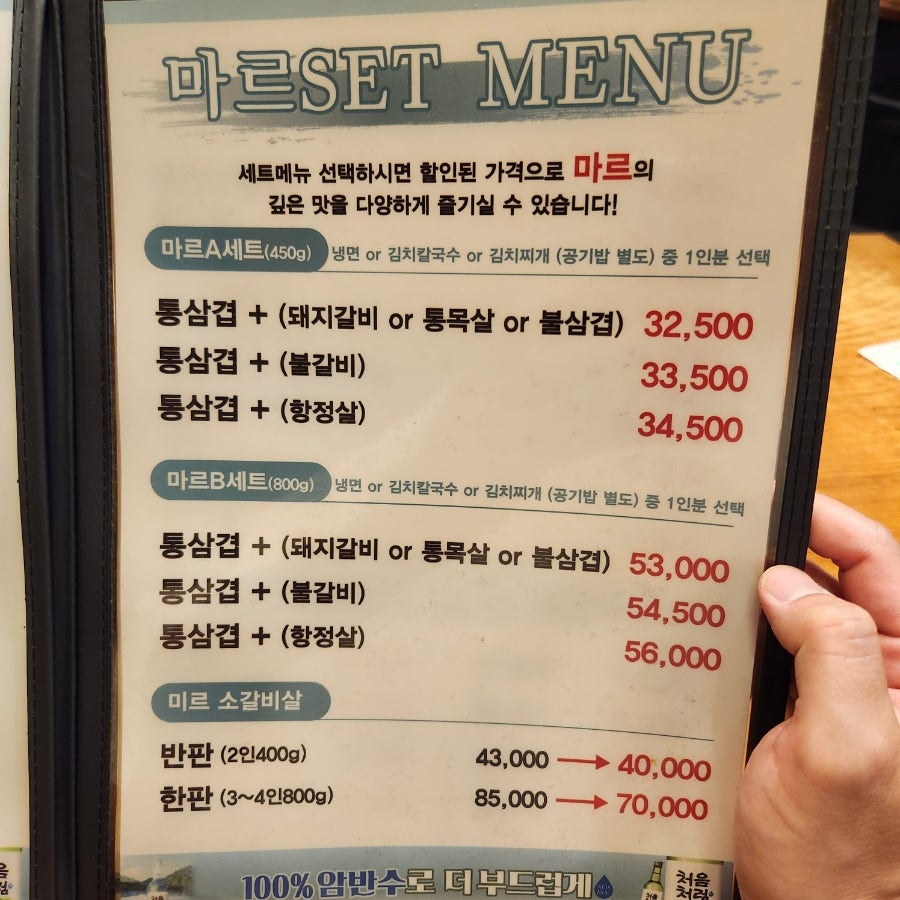 마르SET MENU
세트메뉴 선택하시면 할인된 가격으로 마르의
깊은 맛을 다양하게 즐기실 수 있습니다!
마르A세트(450g) 냉면 or 김치칼국수 or 김치찌개 (공기밥 별도) 중 1인분 선택
통삼겹 + (돼지갈비 or 통목살 or 불삼겹) 32,500
통삼겹 + (불갈비) 33,500
통삼겹 + (항정살) 34,500
마르B세트(800g) 냉면 or 김치칼국수 or 김치찌개 (공기밥 별도) 중 1인분 선택
통삼겹 + (돼지갈비 or 통목살 or 불삼겹) 53,000
통삼겹 + (불갈비) 54,500
통삼겹 + (항정살) 56,000
미르 소갈비살
반판 (2인400g) 43,000 → 40,000
한판 (3~4인800g) 85,000 → 70,000
100% 암반수로 더 부드럽게
처음
처럼